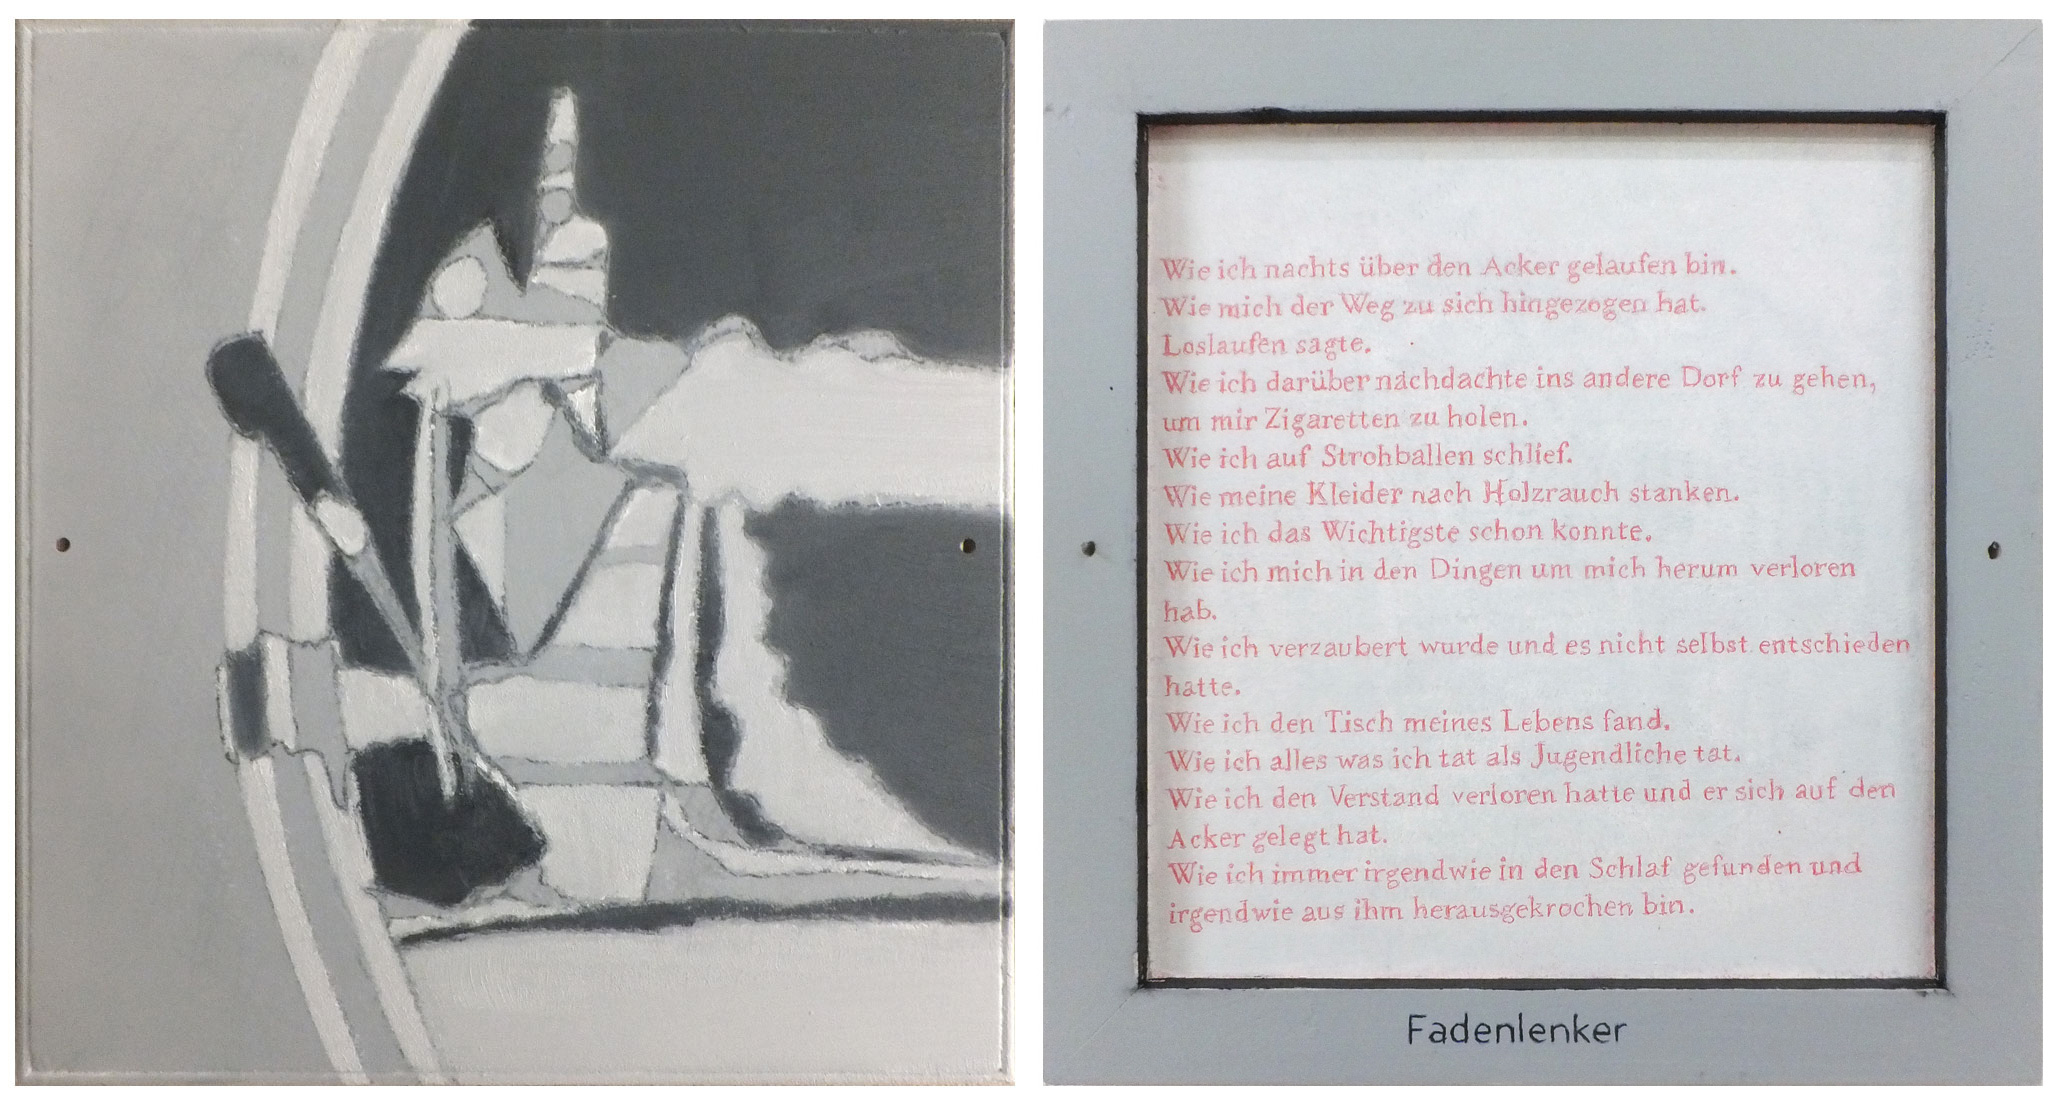 Wie ich nachts über den Acker gelaufen bin.
Wie mich der Weg zu sich hingezogen hat.
Loslaufen sagte.
Wie ich darüber nachdachte ins andere Dorf zu gehen,
um mir Zigaretten zu holen.
Wie ich auf Strohballen schlief.
Wie meine Kleider nach Holzrauch stanken.
Wie ich das Wichtigste schon konnte.
Wie ich mich in den Dingen um mich herum verloren
hab.
Wie ich verzaubert wurde und es nicht selbst entschieden
hatte.
Wie ich den Tisch meines Lebens fand.
Wie ich alles was ich tat als Jugendliche tat.
Wie ich den Verstand verloren hatte und er sich auf den
Acker gelegt hat.
Wie ich immer irgendwie in den Schlaf gefunden und
irgendwie aus ihm herausgekrochen bin.
Fadenlenker